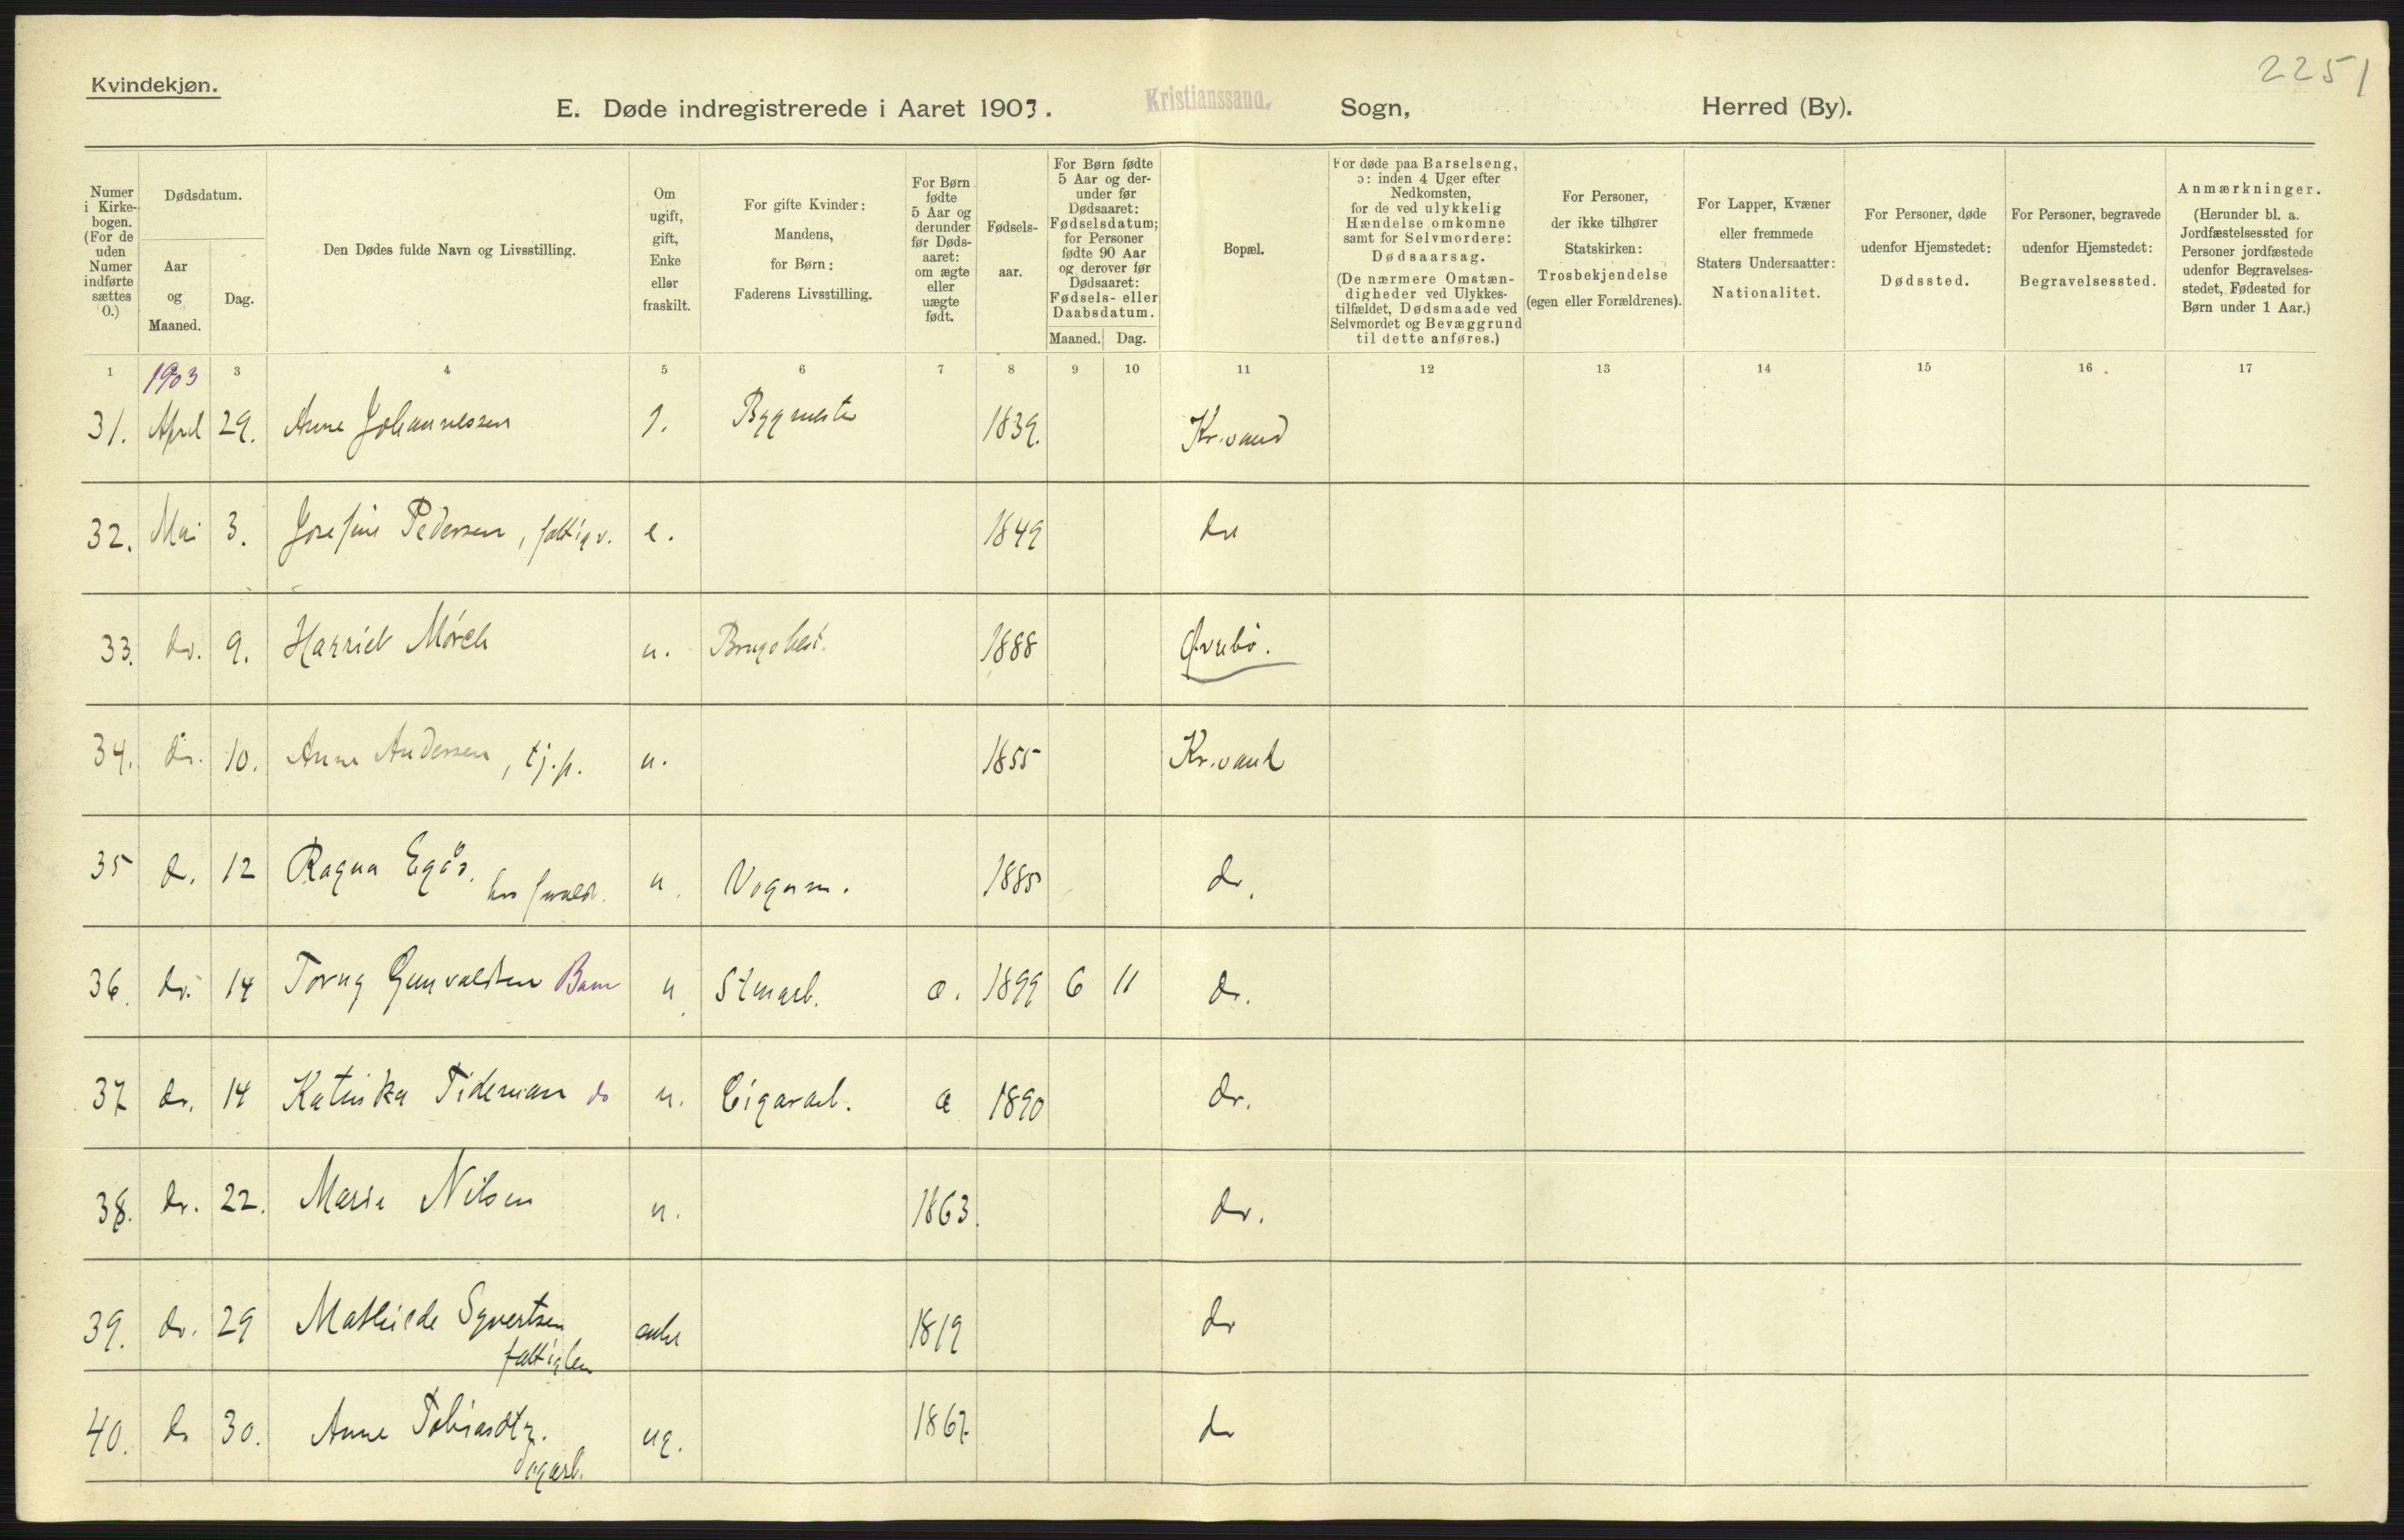 2251
Kvindekjøn.
E. Døde indregistrerede i Aaret 1903. Kristianssand. Sogn, Herred (By).
Numer i Kirkebogen. (For de uden Numer indførte sættes O.)
Dødsdatum.
Aar og Maaned.
Dag.
Den Dødes fulde Navn og Livsstilling.
Om ugift, gift, Enke eller fraskilt.
For gifte Kvinder: Mandens, for Børn: Faderens Livsstilling.
For Børn fødte 5 Aar og derunder før Dødsaaret: om ægte eller uægte født.
Fødselsaar.
For Børn fødte 5 Aar og derunder før Dødsaaret: Fødselsdatum; for Personer fødte 90 Aar og derover før Dødsaaret: Fødsels- eller Daabsdatum.
Maaned. Dag.
Bopæl.
For døde paa Barselseng, ɔ: inden 4 Uger efter Nedkomsten, for de ved ulykkelig Hændelse omkomne samt for Selvmordere: Dødsaarsag. (De nærmere Omstændigheder ved Ulykkestilfældet, Dødsmaade ved Selvmordet og Bevæggrund til dette anføres.)
For Personer, der ikke tilhører Statskirken: Trosbekjendelse (egen eller Forældrenes).
For Lapper, Kvæner eller fremmede Staters Undersaatter: Nationalitet.
For Personer, døde udenfor Hjemstedet: Dødssted.
For Personer, begravede udenfor Hjemstedet: Begravelsessted.
Anmærkninger. (Herunder bl. a. Jordfæstelsessted for Personer jordfæstede udenfor Begravelsesstedet, Fødested for Børn under 1 Aar.)
1 1903 3 4 5 6 7 8 9 10 11 12 13 14 15 16 17
31. April 29. Anne Johannessen Bygmester 1839. Kr.sand
32. Mai 3. Josefine Pedersen, fattigv. e. 1849 do
33. do. 9. Harriet Mörch u. 1888 Øvrebö.
34. do. 10. Anne Andersen, tj.p. u. 1855 Kr.sand
35 do. 12 Ragna Egås. hos foræld. u. Vognm. 1885 do.
36. do. 14 Torny Gunvaldsen Barn u. æ. 1899 6 11 do.
37 do. 14 Katinka Tideman do u. Cigararb. æ 1890 do.
38. do. 22. Marie Nilsen u. 1863. do.
39. do. 29 Mathilde Syvertsen enke 1819 do
fattiglem
40. do 30. Anne Tobiasdtr. ug. 1867 do
dagarb.